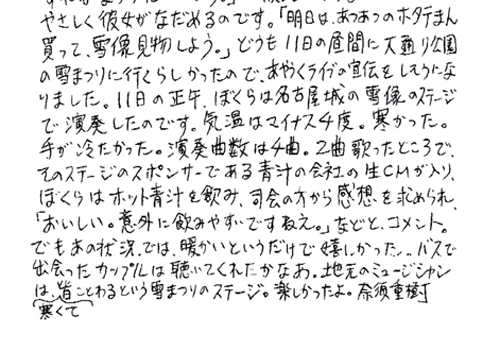 やさしく彼女がなだめるのです。「明日は、あつあつのホタテまん
買って、雪像見物しよう。」どうも11日の昼間に大通り公園
の雪まつりに行くらしかったので、あやくライブの宣伝をしそうにな
りました。11日の正午、ぼくらは名古屋城の雪像のステージ
で演奏したのです。気温はマイナス4度。寒かった。
手が冷たかった。演奏曲数は4曲。2曲歌ったところで、
そのステージのスポンサーである青汁の会社の生CMが入り、
ぼくらはホット青汁を飲み、司会の方から感想を求められ、
「おいしい。意外に飲みやすいですねえ。」などと、コメント。
でもあの状況では、暖かいというだけで嬉しかった...バスで
出会ったカップルは聴いてくれたかなあ。地元のミュージシャン
は、皆ことわるという雪まつりのステージ。楽しかったよ。奈須重樹
寒くて